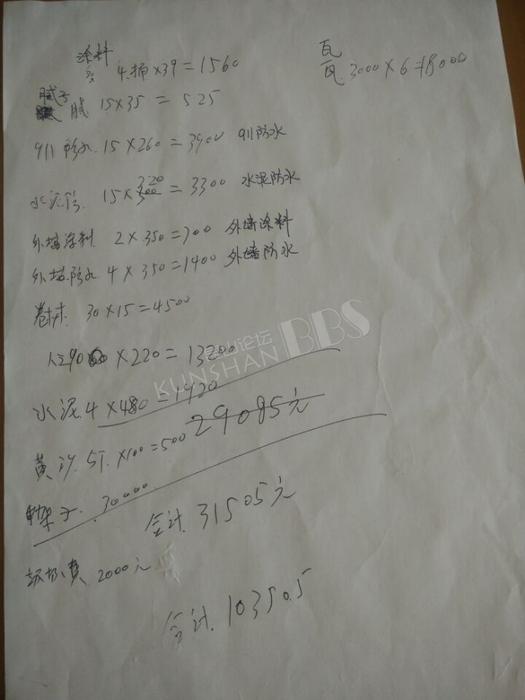 涂料
4桶×39=1560
瓦
瓦 3000×6=18000
腻子 15×35=525
911防水 15×260=3900 911防水
水泥防 15×220=3300 水泥防水
外墙涂料 2×350=700 外墙涂料
外墙防水 4×350=1400 外墙防水
卷材 30×15=4500
人工 ×220=13200
水泥 4×480=1920
29085元
黄沙 5T ×100=500
架子 30000
合计 31505元
2000元
合计 10350.5
KUNSHAN 论坛 BBS